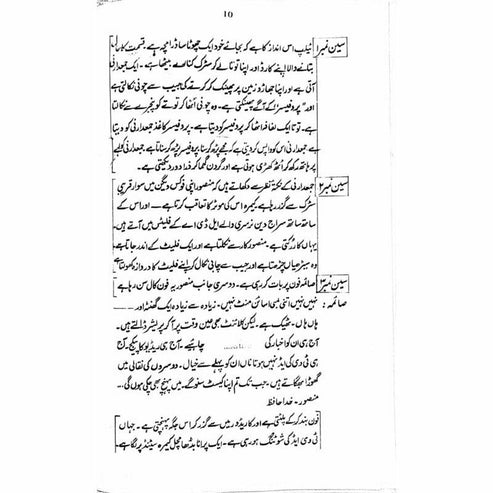 10
سین نمبر ۱ ٹیلپ اس انداز کا ہے کہ بجائے خود ایک چھوٹا سا ڈرامچہ ہے۔ قسمت کا حال
بتانے والا اپنے کارڈ اور اپنا توتا لے کر سڑک کنارے بیٹھا ہے۔ ایک جمعدارنی
آتی ہے اور اپنا جھاڑو زمین پر پھینک کر کُرتے کی جیب سے چونی نکالتی ہے
اور "پروفیسر" کے آگے پھینکتی ہے۔ وہ چونی اُٹھا کر توتے کو پنجرے سے نکالتا
ہے۔ توتا ایک لفافہ اٹھا کر پروفیسر کو دیتا ہے۔ پروفیسر کاغذ جمعدارنی کو دیتا
ہے جمعدارنی اس کو واپس کر دیتی ہے کہ مجھے پڑھ کر سنا۔ پروفیسر پڑھ کر سناتا ہے جمعدارنی کولہے
پر ہاتھ رکھ کر اُٹھ کھڑی ہوتی ہے اور گردن گھما کر خود دور دیکھتی ہے۔
سین نمبر ۲ جمعدارنی کے نکتۂ نظر سے دکھاتے ہیں کہ منصور اپنی فوکس ویگن میں سوار قریبی
سڑک سے گذر رہا ہے کیمرہ اس کی موٹر کا تعاقب کرتا ہے۔ اور اس کے
ساتھ ساتھ سراج دین نرسری والے ایل ڈی اے کے فلیٹس میں آتے ہیں۔
یہاں کار رکتی ہے۔ منصور کار سے نکلتا ہے اور ایک فلیٹ کے اندر جاتا ہے
وہ سیڑھیاں چڑھتا ہے اور جیب سے چابی نکال کر اپنے فلیٹ کا دروازہ کھولتا ہے
سین نمبر ۳ صائمہ فون پر بات کر رہی ہے۔ دوسری جانب منصور یہ فون کال سن رہا ہے
صائمہ : نہیں نہیں اتنی لمبی اسائن منٹ نہیں۔ زیادہ سے زیادہ ایک گھنٹہ اور
ہاں ہاں۔ ٹھیک ہے۔ لیکن کلائنٹ بھی عین وقت پر آ کر پریشر ڈالتے ہیں۔
آج ہی ان کو اخبار کی چاہیے۔ آج ہی ریڈیو کا پیکج۔ آج
ہی ٹی وی کی ایڈ نہیں ہوتا ناں ان کو پہلے سے خیال۔ دوسروں کی نقالی میں
گھوڑا بھگاتے ہیں۔ جب تک تم اپنا کیسٹ سنو گے۔ میں پہنچ بھی چکی ہوں گی...
منصور۔ خدا حافظ
فون بند کر کے پلٹتی ہے اور کاریڈور میں سے گزر کر اس جگہ پہنچتی ہے۔ جہاں
ٹی وی ایڈ کی شوٹنگ ہو رہی ہے۔ ایک پرانا بڈھا کیمرہ سٹینڈ پر لگا ہے۔